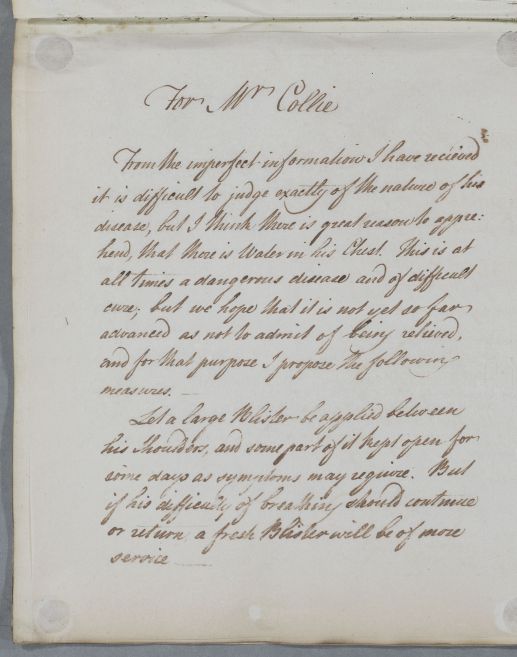 For Mr Collie
From the imperfect information I have recieved
it is difficult to judge exactly of the nature of his
disease, but I think there is great reason to appre:
hend, that there is Water in his Chest. This is at
all times a dangerous disease and of difficult
cure; but we hope that it is not yet so far
advanced as not to admit of being relieved,
and for that purpose I propose the following
measures. —
Let a large Blister be applied between
his Shoulders, and some part of it kept open for
some days as symptoms may require. But
if his difficulty of breathing should continue
or return, a fresh Blister will be of more
service